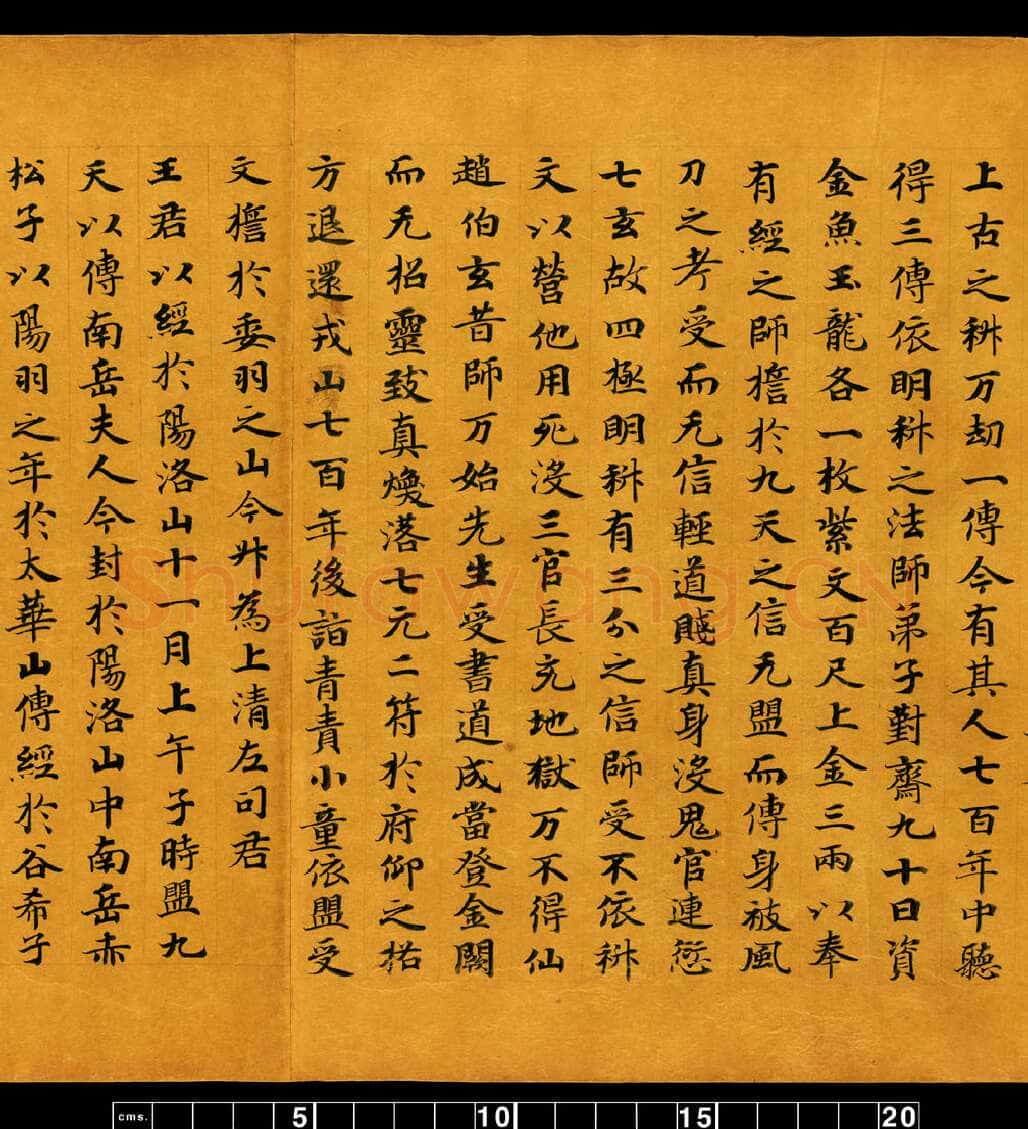 上古之科万劫一傳今有其人七百年中聽
得三傳依明科之法師弟子對齋九十日資
金魚玉龍各一枚紫文百尺上金三兩以奉
有經之師擔於九天之信无盟而傳身被風
刀之考受而无信輕道賤真身沒鬼官連愆
七玄故四極明科有三分之信師受不依科
文以營他用死沒三官長充地獄万不得仙
趙伯玄昔師万始先生受書道成當登金闕
而无招靈致真煥落七元二符於府仰之格
方退還戎山七百年後詣青青小童依盟受
文擔於委羽之山今升為上清左司君
王君以經於陽洛山十一月上午子時盟九
天以傳南岳夫人今封於陽洛山中南岳赤
松子以陽羽之年於太華山傳經於谷希子
Shufawang.CN
cms. 5 10 15 20